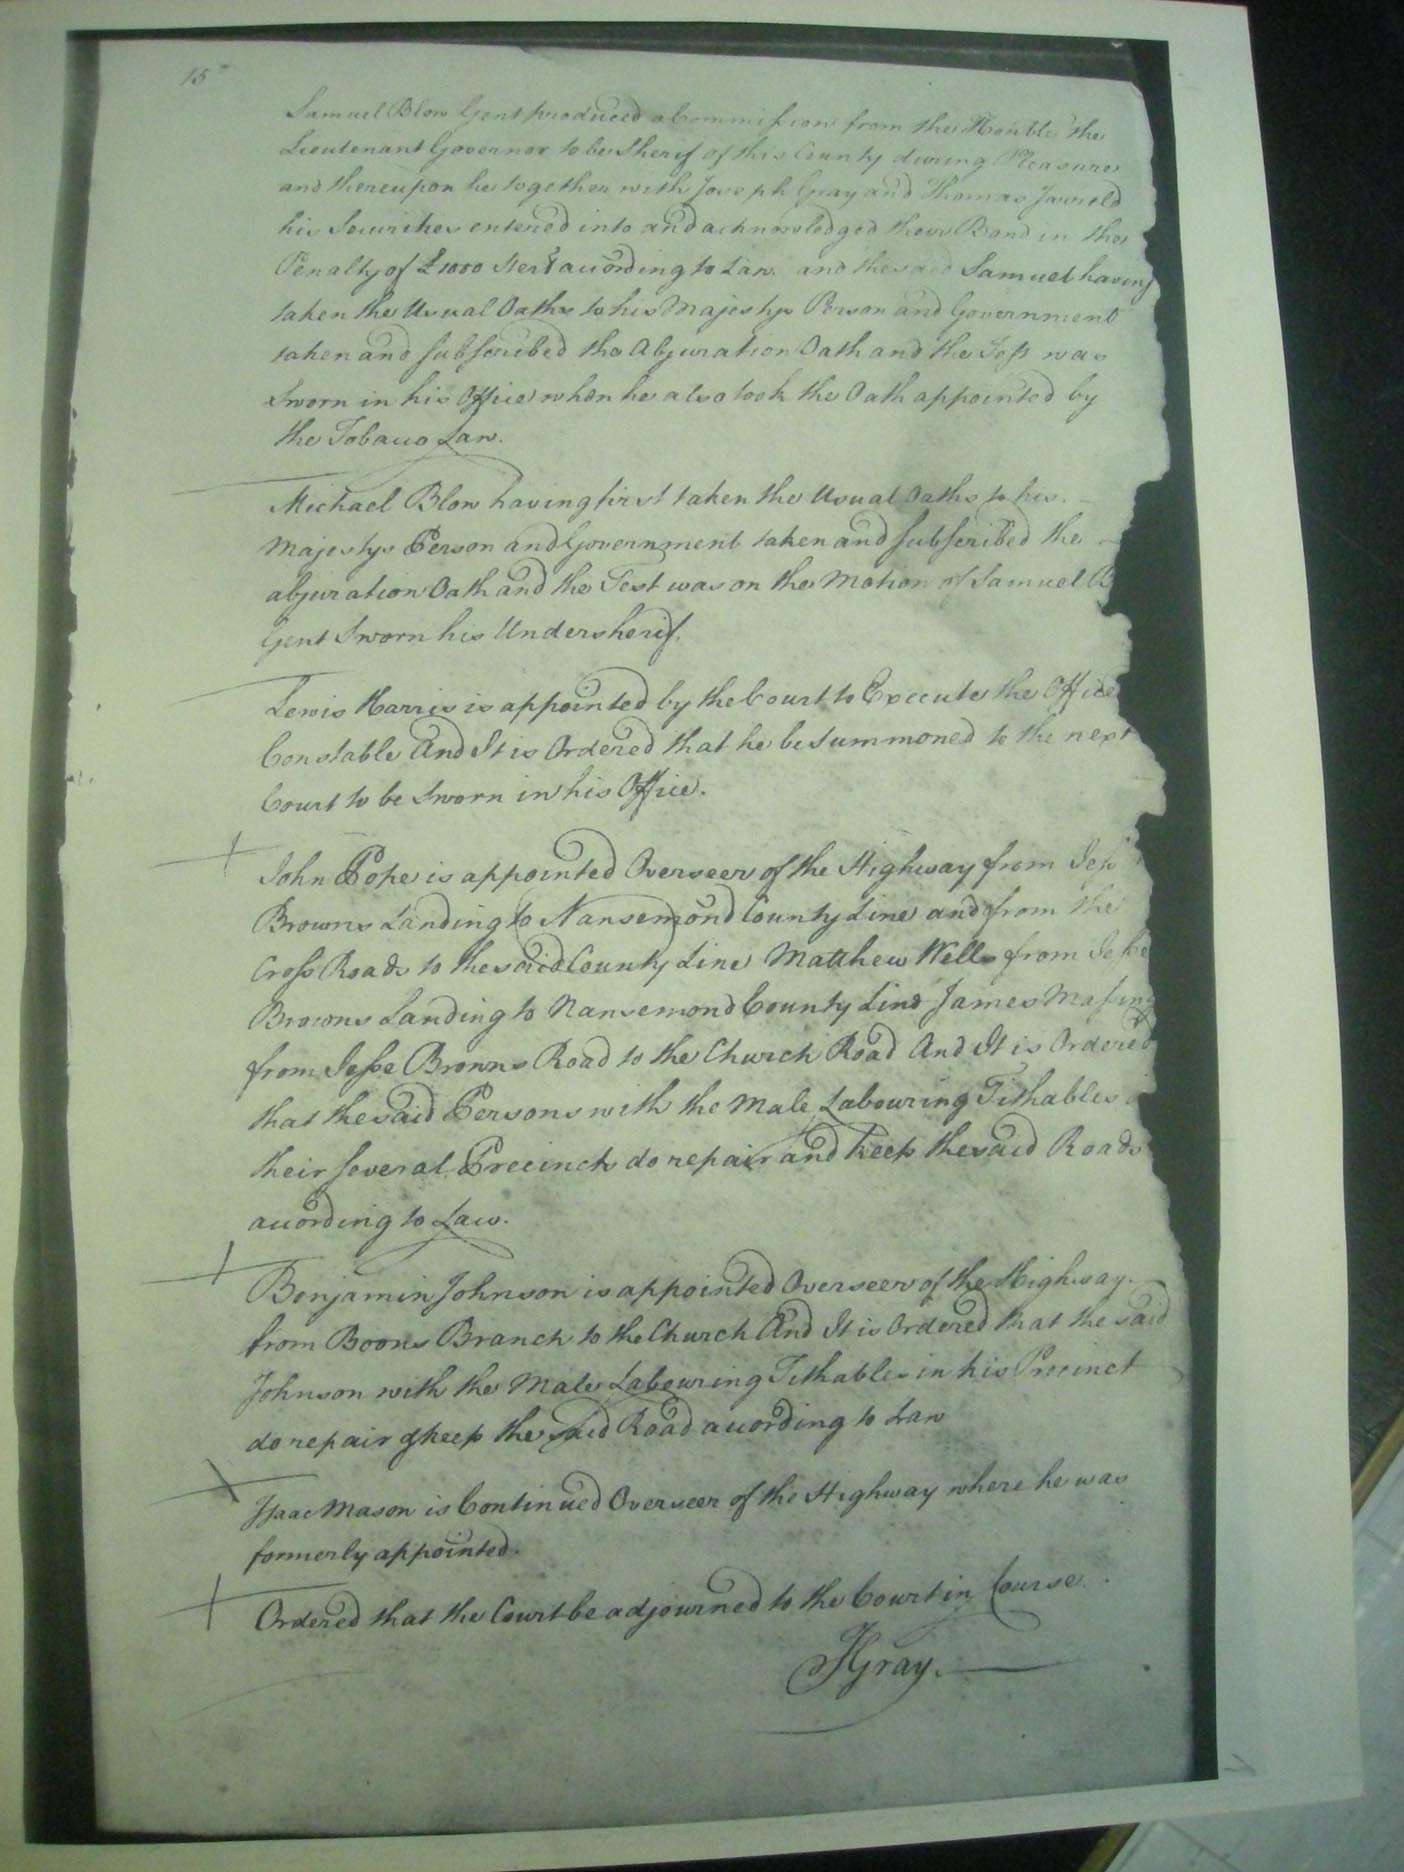 15
Samuel Blow Gent produced a Commission from the Honble the
Lieutenant Governor to be Sherif of this County during Pleasure
and thereupon he together with Joseph Gray and Thomas Jarreld
his Securities entered into and acknowledged their Bond in the
Penalty of £1000 Sterg according to Law. and the said Samuel having
taken the Usual Oaths to his Majestys Person and Government
taken and subscribed the Abjuration Oath and the Test was
Sworn in his Office when he also took the Oath appointed by
the Tobacco Law.
Michael Blow having first taken the Usual Oaths to his
Majestys Person and Government taken and subscribed the
abjuration Oath and the Test was on the Motion of Samuel B
Gent Sworn his Undersherif.
Lewis Harris is appointed by the Court to Execute the Office
Constable And It is Ordered that he be Summoned to the next
Court to be Sworn in his Office.
John Pope is appointed Overseer of the Highway from Jess
Browns Landing to Nansemond County Line and from the
Cross Roads to the said County Line Matthew Wells from Jesse
Browns Landing to Nansemond County Line James Massing
from Jesse Browns Road to the Church Road And It is Ordered
that the said Persons with the Male Labouring Tithables
their several Precincts do repair and keep the said Roads
according to Law.
Benjamin Johnson is appointed Overseer of the Highway
from Boons Branch to the Church And It is Ordered that the said
Johnson with the Male Labouring Tithables in his Precinct
do repair & keep the said Road according to Law
Isaac Mason is Continued Overseer of the Highway where he was
formerly appointed.
Ordered that the Court be adjourned to the Court in Course.
JGray.